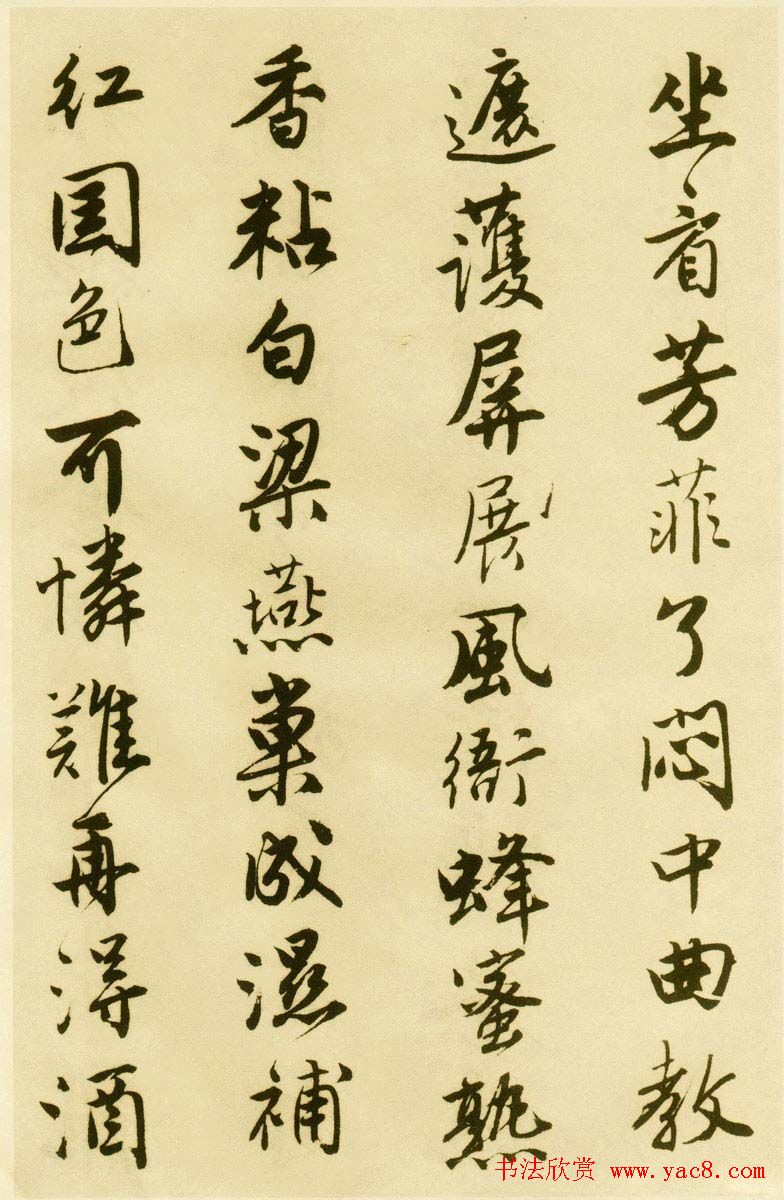 坐看芳菲了悶中曲教
遮護屏展風衙蜂蜜熟
香粘白梁燕巢成濕補
紅國色可憐難再得酒
书法欣赏 www.yac8.com